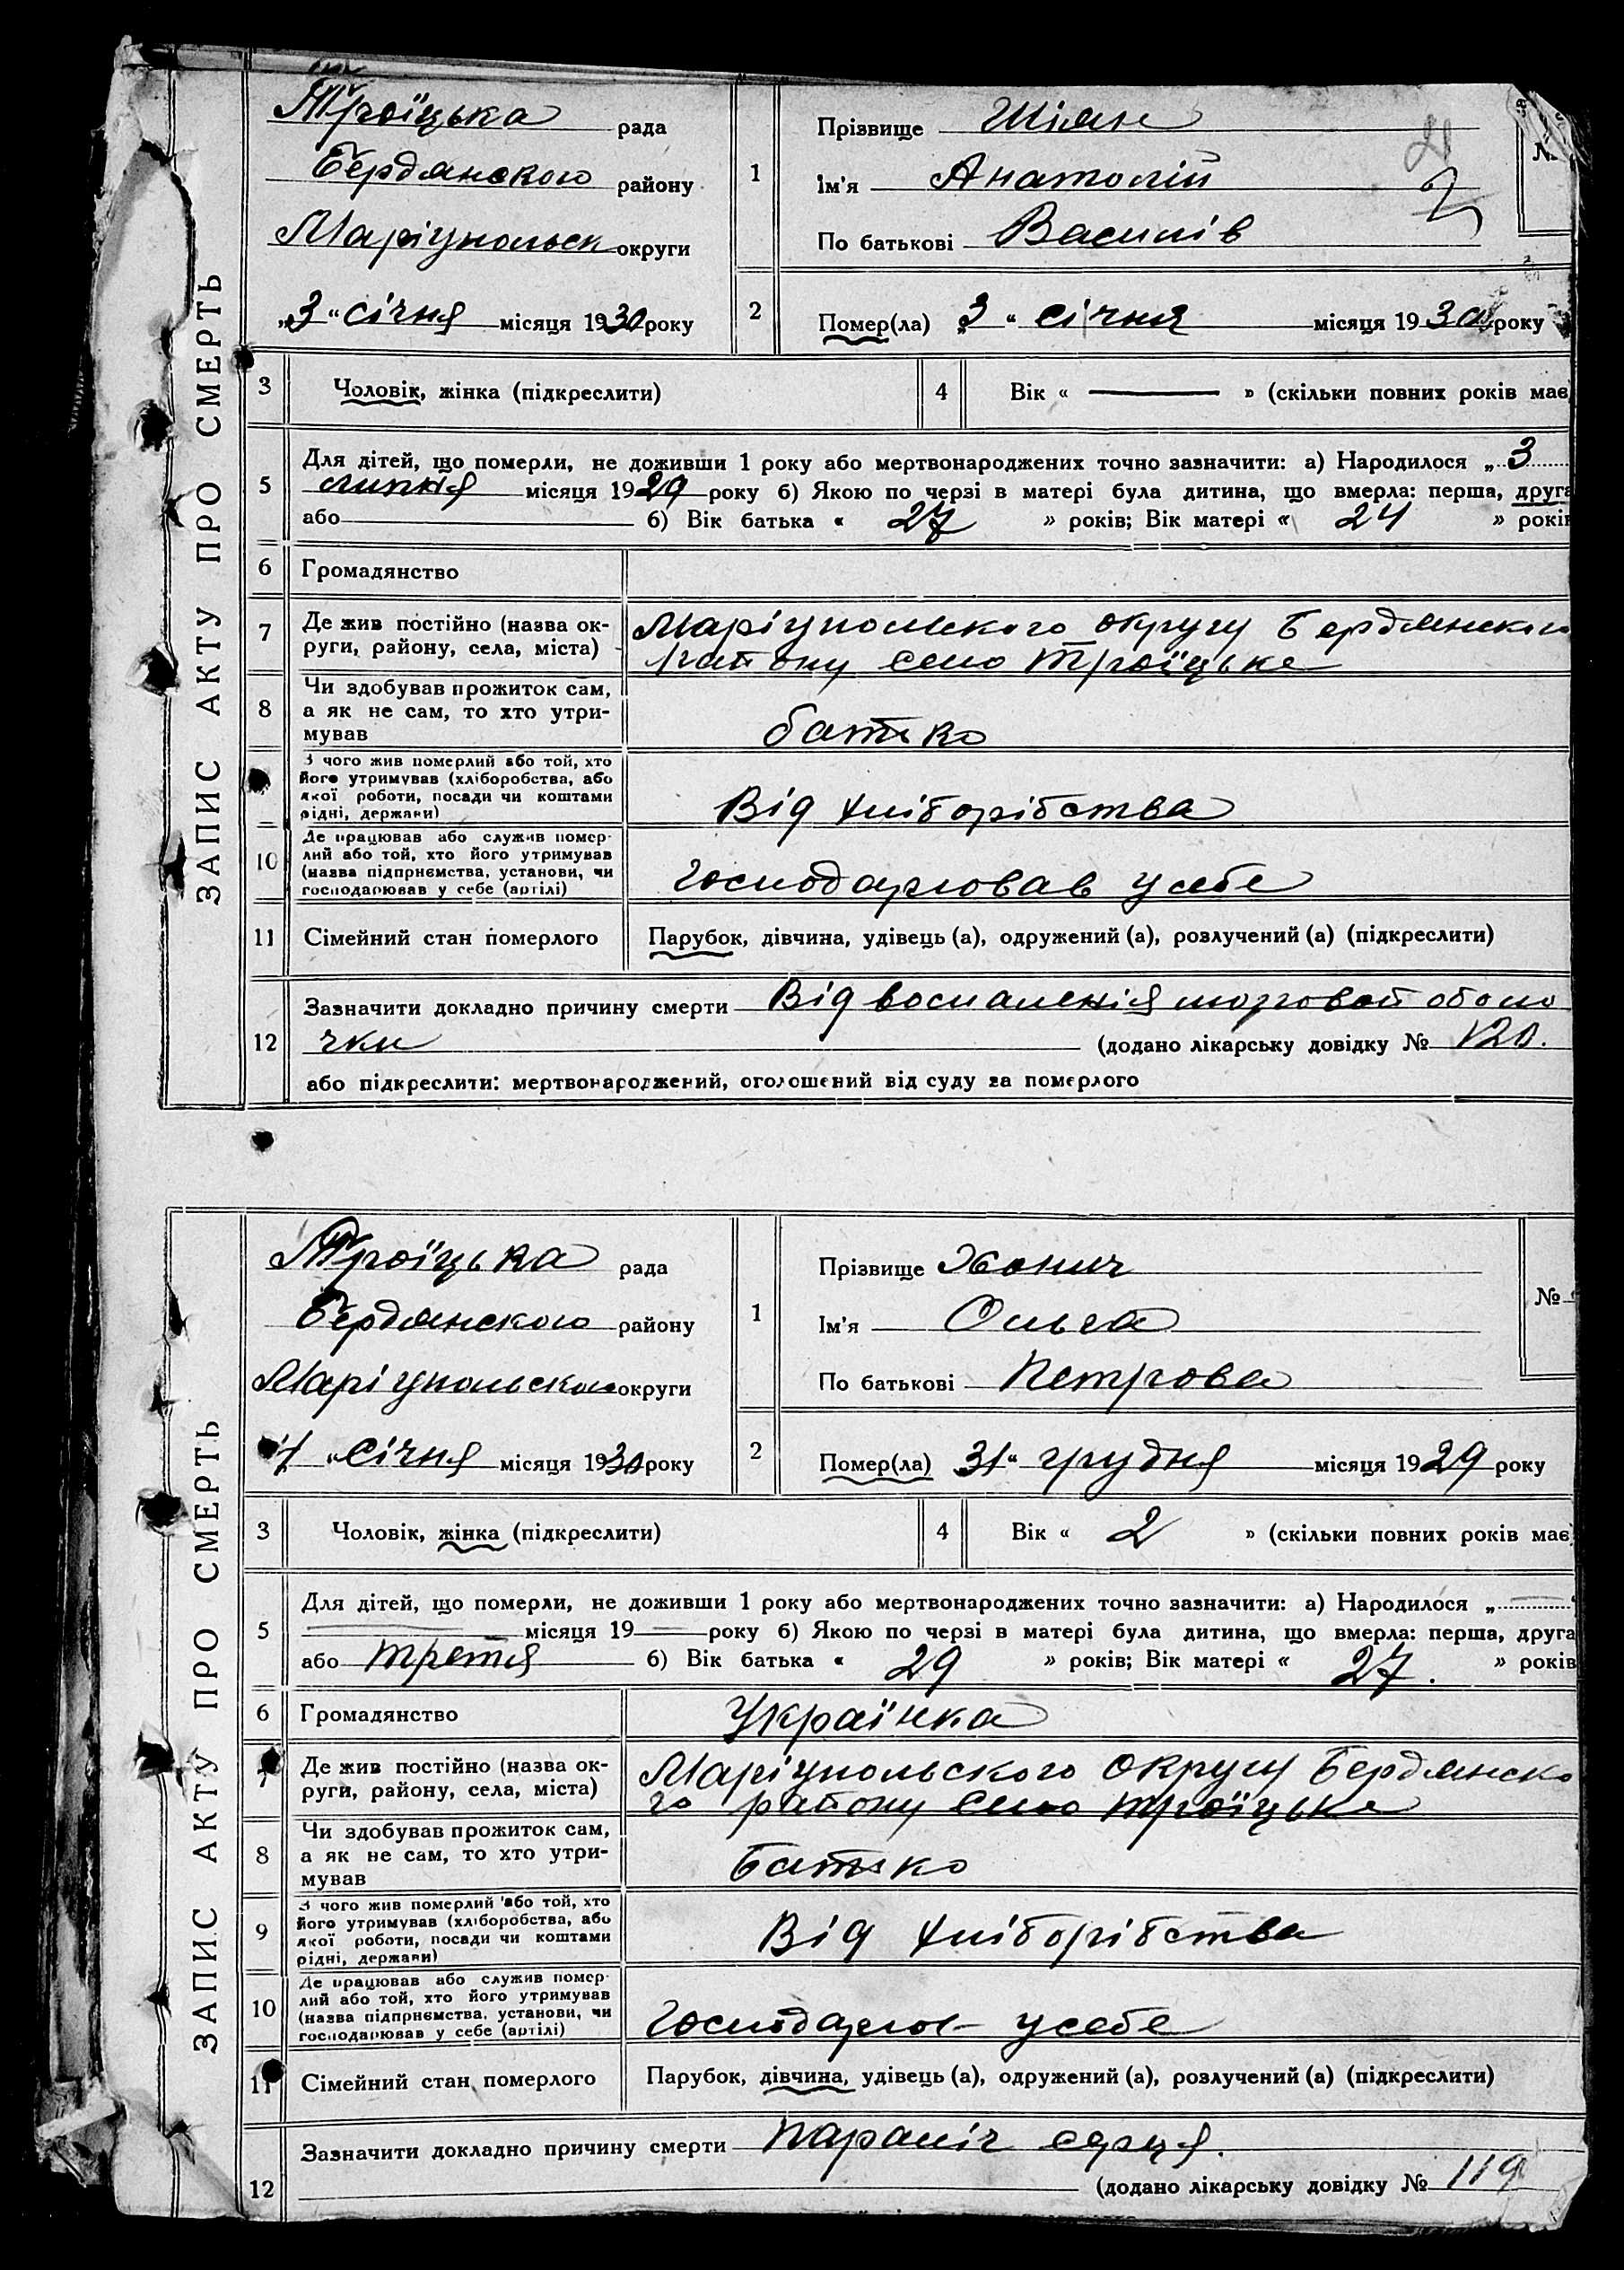 ЗАПИС АКТУ ПРО СМЕРТЬ
Троїцька рада
Бердянского району
Маріупольськ округи
„3“ січня місяця 1930 року
1
Прізвище Шіян
Ім'я Анатолій
По батькові Василів
№
2
Помер(ла) „3“ січня місяця 1930 року
3
Чоловік, жінка (підкреслити)
4
Вік « — » (скільки повних років має)
5
Для дітей, що померли, не доживши 1 року або мертвонароджених точно зазначити: а) Народилося „3
липня місяця 1929 року б) Якою по черзі в матері була дитина, що вмерла: перша, друга
або б) Вік батька « 27 » років; Вік матері « 24 » років
6
Громадянство
7
Де жив постійно (назва ок-
руги, району, села, міста)
Маріупольского округу Бердянского
району село Троїцьке
8
Чи здобував прожиток сам,
а як не сам, то хто утри-
мував
батько
З чого жив померлий або той, хто
його утримував (хліборобства, або
якої роботи, посади чи коштами
рідні, держави)
Від хліборібства
10
Де працював або служив помер-
лий або той, хто його утримував
(назва підприємства, установи, чи
господарював у себе (артілі)
Господарював у себе
11
Сімейний стан померлого
Парубок, дівчина, удівець (а), одружений (а), розлучений (а) (підкреслити)
12
Зазначити докладно причину смерти Від воспаленія мозговой оболо
чки (додано лікарську довідку № 120.
або підкреслити: мертвонароджений, оголошений від суду за померлого
ЗАПИС АКТУ ПРО СМЕРТЬ
Троїцька рада
Бердянского району
Маріупольского округи
січня місяця 1930 року
1
Прізвище Хонич
Ім'я Ольга
По батькові Петрова
№
2
Помер(ла) „31“ грудня місяця 1929 року
3
Чоловік, жінка (підкреслити)
4
Вік « 2 » (скільки повних років має)
5
Для дітей, що померли, не доживши 1 року або мертвонароджених точно зазначити: а) Народилося „
місяця 19 — року б) Якою по черзі в матері була дитина, що вмерла: перша, друга
або третя б) Вік батька « 29 » років; Вік матері « 27. » років
6
Громадянство
Українка
7
Де жив постійно (назва ок-
руги, району, села, міста)
Маріупольского округу Бердянско
го району село Троїцьке
8
Чи здобував прожиток сам,
а як не сам, то хто утри-
мував
Батько
9
З чого жив померлий або той, хто
його утримував (хліборобства, або
якої роботи, посади чи коштами
рідні, держави)
Від хліборібства
10
Де працював або служив помер-
лий або той, хто його утримував
(назва підприємства, установи, чи
господарював у себе (артілі)
у себе
11
Сімейний стан померлого
Парубок, дівчина, удівець (а), одружений (а), розлучений (а) (підкреслити)
12
Зазначити докладно причину смерти Параліч серця.
(додано лікарську довідку № 119